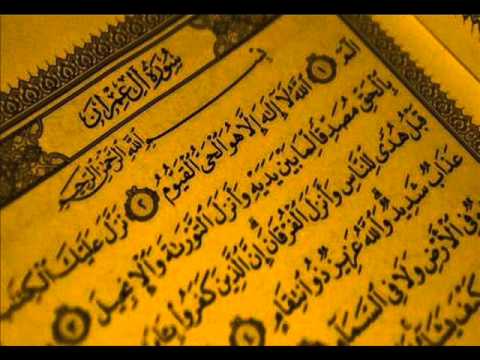 سُورَةُ آلِ عِمْرَانَ
بِسْمِ اللَّهِ الرَّحْمَٰنِ الرَّحِيمِ
الٓمٓ ١ ٱللَّهُ لَآ إِلَٰهَ إِلَّا هُوَ ٱلْحَىُّ ٱلْقَيُّومُ ٢ نَزَّلَ عَلَيْكَ ٱلْكِتَٰبَ
بِٱلْحَقِّ مُصَدِّقًا لِّمَا بَيْنَ يَدَيْهِ وَأَنزَلَ ٱلتَّوْرَىٰةَ وَٱلْإِنجِيلَ ٣
قَبْلُ هُدًى لِّلنَّاسِ وَأَنزَلَ ٱلْفُرْقَانَ إِنَّ ٱلَّذِينَ كَفَرُوا۟
عَذَابٌ شَدِيدٌ وَٱللَّهُ عَزِيزٌ ذُو ٱنتِقَامٍ ٤
فِى ٱلْأَرْضِ وَلَا فِى ٱلسَّمَآءِ
كَيْفَ يَشَآءُ